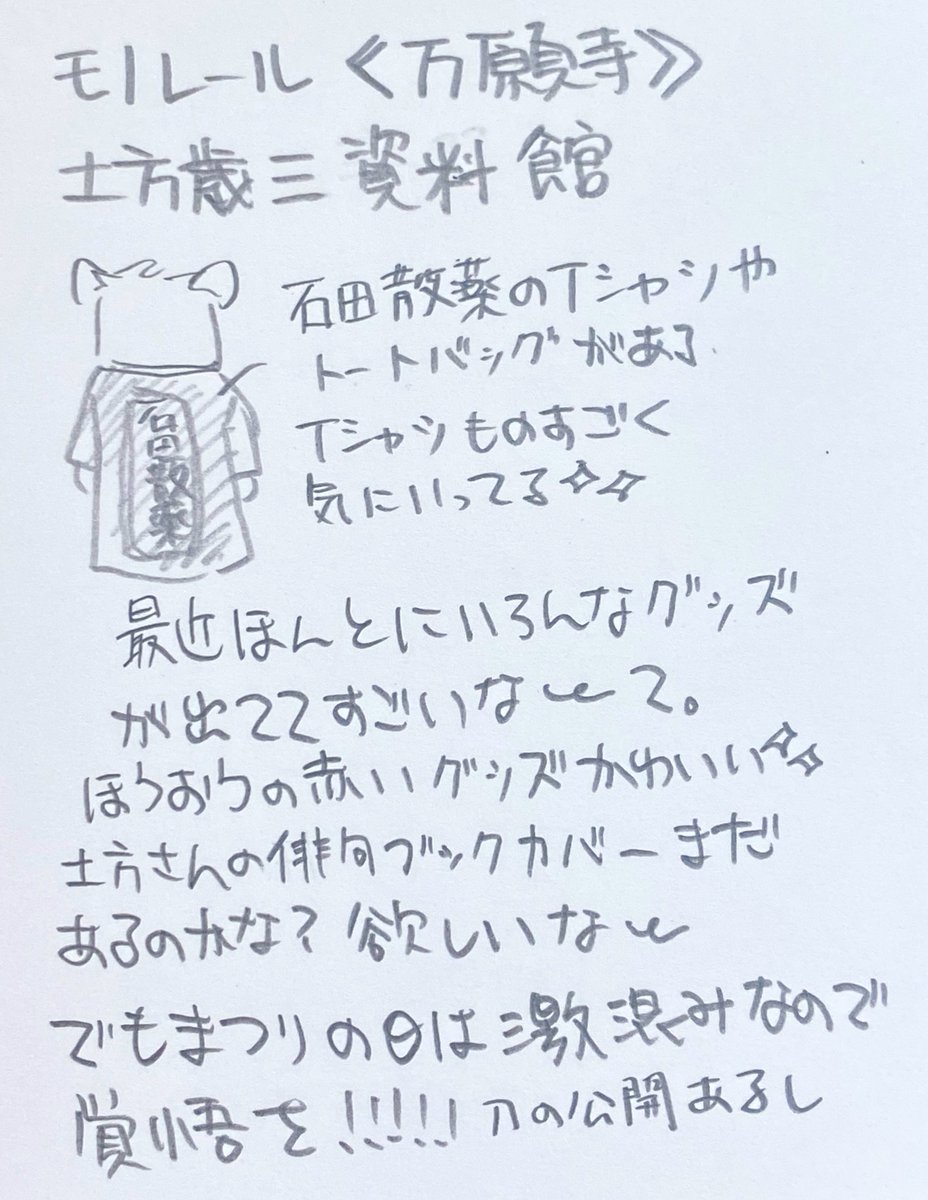 モノレール《万願寺》
土方歳三資料館
石田散薬のTシャツや
トートバッグがある
Tシャツものすごく
気にいってる
石田散薬
最近ほんとにいろんなグッズ
が出ててすごいな〜て。
ほうおうの赤いグッズかわいい
土方さんの俳句ブックカバーまだ
あるのかな？欲しいな〜
でもまつりの日は激混みなので
覚悟を!!!!! 刀の公開あるし